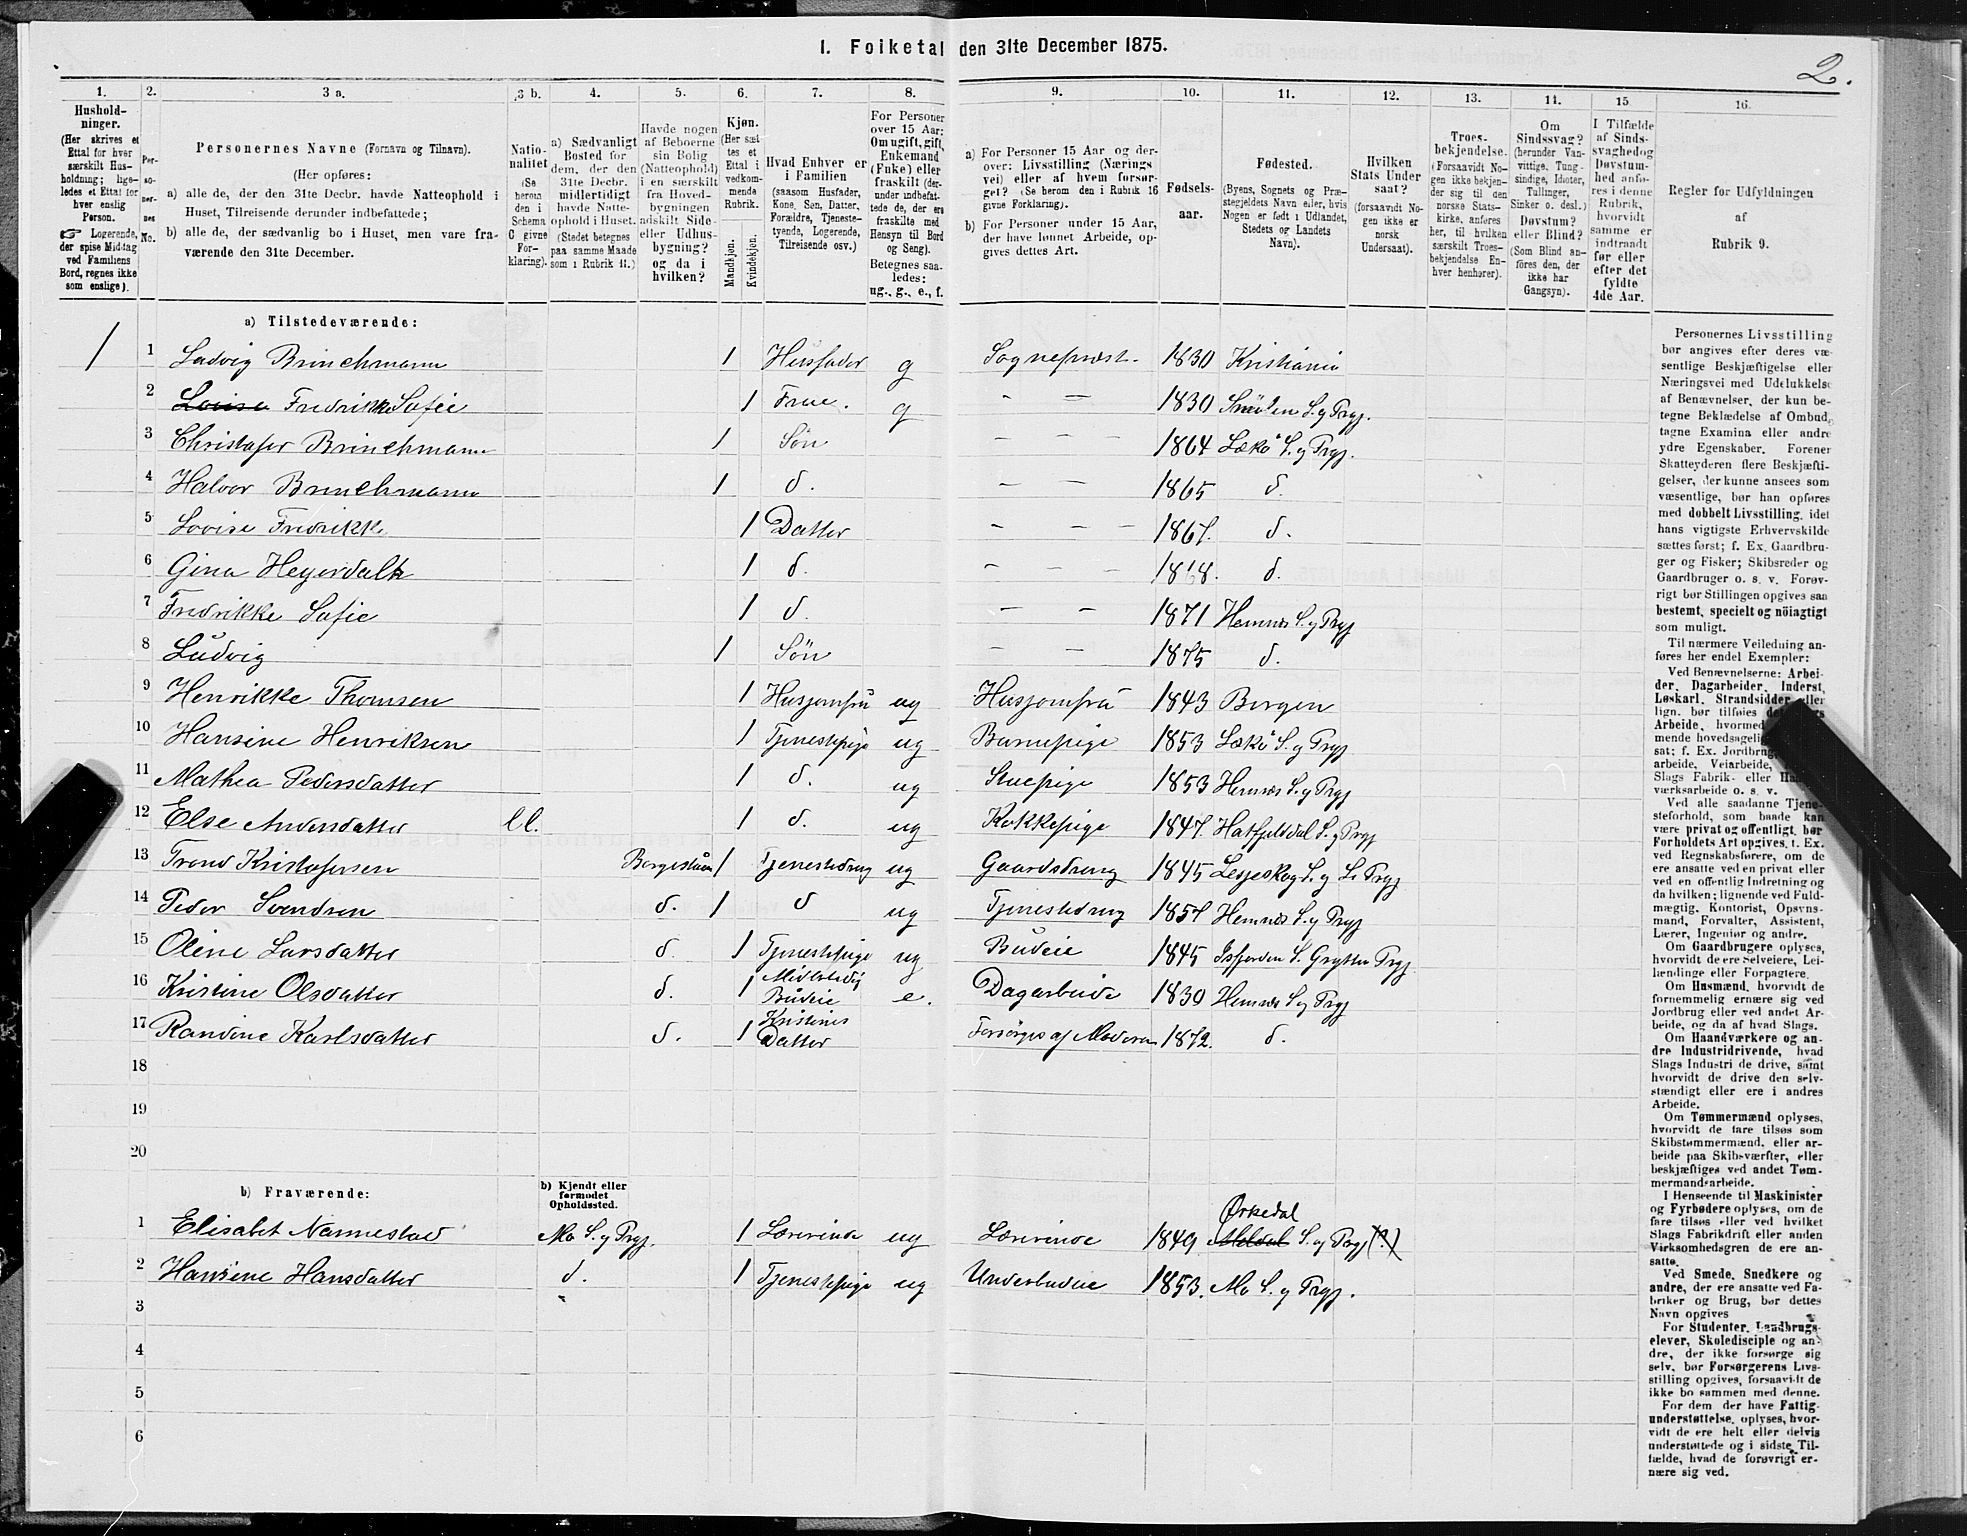 I. Folketal den 31te December 1875.
2.
1.
Hushold-
ninger.
(Her skrives et
Ettal for hver
særskilt Hus-
holdning; lige-
ledes et Ettal for
hver enslig
Person.
☞ Logerende,
der spise Middag
ved Familiens
Bord, regnes ikke
som enslige).
2.
Per-
so-
ner-
nes
No.
3 a.
Personernes Navne (Fornavn og Tilnavn).
(Her opføres:
a) alle de, der den 31te Decbr. havde Natteophold i
Huset, Tilreisende derunder indbefattede;
b) alle de, der sædvanlig bo i Huset, men vare fra-
værende den 31te December.
3 b.
Natio-
nalitet
(Se
herom
den i
Schema
C givne
For-
klaring).
4.
a) Sædvanligt
Bosted for
dem, der den
31te Decbr.
midlertidigt
havde Natte-
ophold i Huset.
(Stedet betegnes
paa samme Maade
som i Rubrik 11.)
5.
Havde nogen
af Beboerne
sin Bolig
(Natteophold)
i en særskilt
fra Hoved-
bygningen
adskilt Side-
eller Udhus-
bygning?
og da i
hvilken?
6.
Kjøn.
(Her sæt-
tes et
Ettal i
vedkom-
mende
Rubrik.
Mandkjøn.
Kvindekjøn.
7.
Hvad Enhver er
i Familien
(saasom Husfader,
Kone, Søn, Datter,
Forældre, Tjeneste-
tyende, Logerende,
Tilreisende osv.)
8.
For Personer
over 15 Aar:
Om ugift, gift,
Enkemand
(Enke) eller
fraskilt (der-
under indbefat-
tede de, der ere
fraskilte med
Hensyn til Bord
og Seng).
Betegnes saa-
ledes:
ug., g., e., f.
9.
a) For Personer 15 Aar og der-
over: Livsstilling (Nærings
vei) eller af hvem forsør-
get? (Se herom den i Rubrik 16
givne Forklaring).
b) For Personer under 15 Aar,
der have lønnet Arbeide, op-
gives dettes Art.
10.
Fødsels-
aar.
11.
Fødested.
(Byens, Sognets og Præ-
stegjeldets Navn eller, hvis
Nogen er født i Udlandet,
Stedets og Landets
Navn).
12.
Hvilken
Stats Under
saat?
(forsaavidt No-
gen ikke er
norsk
Undersaat).
13.
Troes-
bekjendelse.
(Forsaavidt No-
gen ikke bekjen-
der sig til den
norske Stats-
kirke, anføres
her, til hvilken
særskilt Troes-
bekjendelse En-
hver henhører).
14.
Om
Sindssvag?
(herunder Van-
vittige, Tung-
sindige, Idioter,
Tullinger,
Sinker o. desl.)
Døvstum?
eller Blind?
(Som Blind an-
føres den, der
ikke har
Gangsyn).
15
I Tilfælde
af Sinds-
svaghed og
Døvstum-
hed anfø-
res i denne
Rubrik,
hvorvidt
samme er
indtraadt
før eller
efter det
fyldte
4de Aar.
16.
Regler for Udfyldningen
af
Rubrik 9.
a) Tilstedeværende:
1 1 Ludvig Brinchmann 1 Husfader g Sognepræst. 1830 Kristiania
2 Lovise Fredrikke Safie 1 Frue. g – – 1830 S. og Prgj.
3 Christofer Brinchmann 1 Søn – – – 1864 Lekø S. og Prgj.
4 Halvor Brinchmann 1 d. – – 1865 d.
5 Lovise Fredrikke 1 Datter – – – 1867. d.
6 Gina Heyerdalh 1 d. 1868. d.
7 Fredrikke Safie 1 d. – – 1871 Hemnæs S. og Prgj
8 Ludvig 1 Søn – – 1875 d.
9 Henrikke Thomsen 1 Husjomfru ug Husjomfru 1843 Bergen
10 Hansine Henriksen 1 Tjenestepige ug Barnepige 1853 Lekø S. og Prgj
11 Mathea Pedersdatter 1 d. ug Stuepige 1853 Hemnæs S. og Prgj
12 Else Andersdatter ll. 1 d. ug Kokkepige 1847. Hatfjeldal S. og Prgj
13 Trond Kristofersen Borgestuen 1 Tjenestedreng ug Gaardsdreng 1845 Lesjeskog S. og L. Prgj
14 Peder Svendsen d. 1 d ug Tjenestedreng 1857 Hemnæs S. og Prgj
15 Oline Larsdatter d. 1 Tjenestepige ug Budeie 1845 Isfjorden S. Grytten Prgj
16 Kristine Olsdatter d. 1 Midlertidig Budeie e. Dagarbeide 1830 Hemnæs S. og Prgj
17 Randine Karlsdatter d. 1 Kristines Datter Forsørges af Moderen 1872. d.
18
19
20
b) Fraværende:
b) Kjendt eller
formodet
Opholdssted.
Ørkedal
1 Elisabet Nannestad Mo S. og Prgj. 1 Lærerinde ug Lærerinde 1849 Meldal S. og Prgj (?)
2 Hansine Hansdatter d. 1 Tjenestepige ug Underbudeie 1853. Mo S. og Prgj.
3
4
5
6
Personernes Livsstilling
bør angives efter deres væ-
sentlige Beskjæftigelse eller
Næringsvei med Udelukkelse
af Benævnelser, der kun be-
tegne Beklædelse af Ombud,
tagne Examina eller andre
ydre Egenskaber. Forener
Skatteyderen flere Beskjæfti-
gelser, der kunne ansees som
væsentlige, bør han opføres
med dobbelt Livsstilling, idet
hans vigtigste Erhvervskilde
sættes først; f. Ex. Gaardbru-
ger og Fisker; Skibsreder og
Gaardbruger o. s. v. Forøv-
rigt bør Stillingen opgives saa
bestemt, specielt og nöiagtigt
som muligt.
Til nærmere Veiledning an-
føres her endel Exempler:
Ved Benævnelserne: Arbei-
der, Dagarbeider, Inderst,
Løskarl, Strandsidder eller
lign. bør tilføies
Arbeide, hvormed
mende hovedsagelig
sat; f. Ex. Jordbrug
arbeide, Veiarbeide,
Slags Fabrik- eller
værksarbeide o. s. v.
Ved alle saadanne Tjene-
steforhold, som baade kan
være privat og offentligt, bør
Forholdets Art opgives, f. Ex.
ved Regnskabsførere, om de
ere ansatte ved en privat eller
ved en offentlig Indretning og
da hvilken; lignende ved Fuld-
mægtig, Kontorist, Opsyns-
mand, Forvalter, Assistent,
Lærer, Ingeniør og andre.
Om Gaardbrugere oplyses,
hvorvidt de ere Selveiere, Lei-
lændinge eller Forpagtere.
Om Husmænd, hvorvidt de
fornemmelig ernære sig ved
Jordbrug eller ved andet Ar-
beide, og da af hvad Slags.
Om Haandværkere og an-
dre Industridrivende, hvad
Slags Industri de drive, samt
hvorvidt de drive den selv-
stændigt eller ere i andres
Arbeide.
Om Tømmermænd oplyses,
hvorvidt de fare tilsøs som
Skibstømmermænd, eller ar-
beide paa Skibsværfter, eller
beskjæftiges ved andet Tøm-
mermandsarbeide.
I Henseende til Maskinister
og Fyrbødere oplyses, om de
fare tilsøs eller ved hvilket
Slags Fabrikdrift eller anden
Virksomhedsgren de ere an-
satte.
Ved Smede, Snedkere og
andre, der ere ansatte ved Fa-
briker og Brug, bør dettes
Navn opgives
For Studenter, Landbrugs-
elever, Skoledisciple og an-
dre, der ikke forsørge sig
selv, bør Forsørgerens Livs-
stilling opgives, forsaavidt de
ikke bo sammen med denne.
For dem der have Fattig-
understøttelse, oplyses, hvor-
vidt de ere helt eller delvis
understøttede og i sidste Til-
fælde, hvad de forøvrigt er-
nære sig ved.